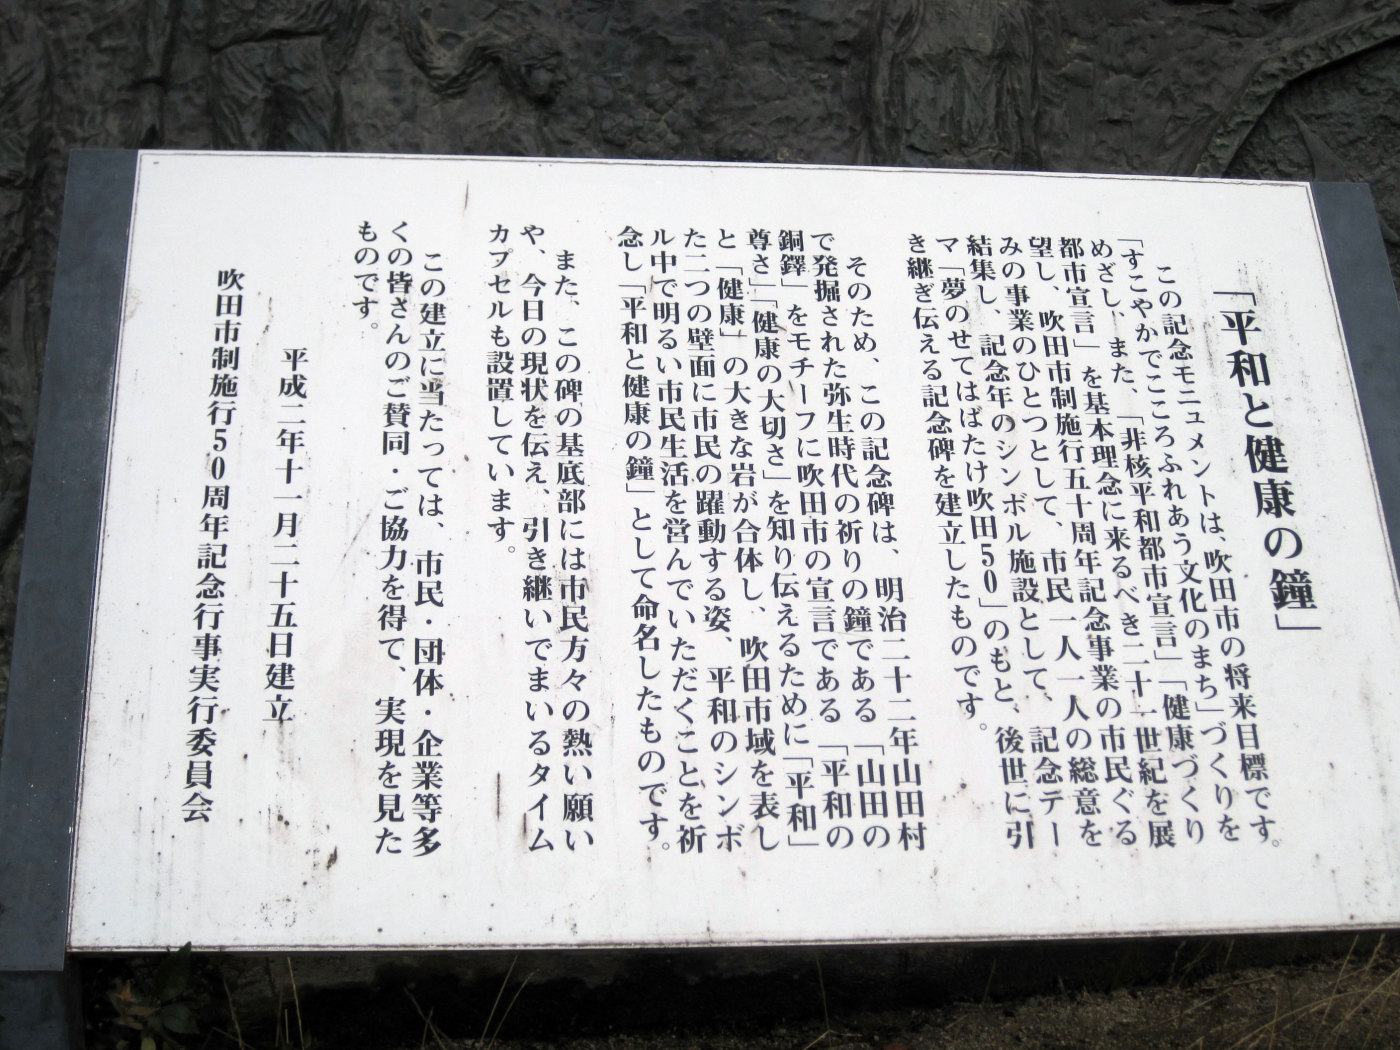 「平和と健康の鐘」
この記念モニュメントは、吹田市の将来目標です。
「すこやかでこころふれあう文化のまち」づくりを
めざし、また、「非核平和都市宣言」「健康づくり
都市宣言」を基本理念に来るべき二十一世紀を展
望し、吹田市制施行五十周年記念事業の市民ぐる
みの事業のひとつとして、市民一人一人の総意を
結集し、記念年のシンボル施設として、記念テー
マ「夢のせてはばたけ吹田50」のもと、後世に引
き継ぎ伝える記念碑を建立したものです。
そのため、この記念碑は、明治二十二年山田村
で発掘された弥生時代の祈りの鐘である「山田の
銅鐸」をモチーフに吹田市の宣言である「平和の
尊さ」「健康の大切さ」を知り伝えるために「平和」
と「健康」の大きな岩が合体し、吹田市域を表し
た二つの壁面に市民の躍動する姿、平和のシンボ
ル中で明るい市民生活を営んでいただくことを祈
念し「平和と健康の鐘」として命名したものです。
また、この碑の基底部には市民方々の熱い願い
や、今日の現状を伝え、引き継いでまいるタイム
カプセルも設置しています。
この建立に当たっては、市民・団体・企業等多
くの皆さんのご賛同・ご協力を得て、実現を見た
ものです。
平成二年十一月二十五日建立
吹田市制施行50周年記念行事実行委員会